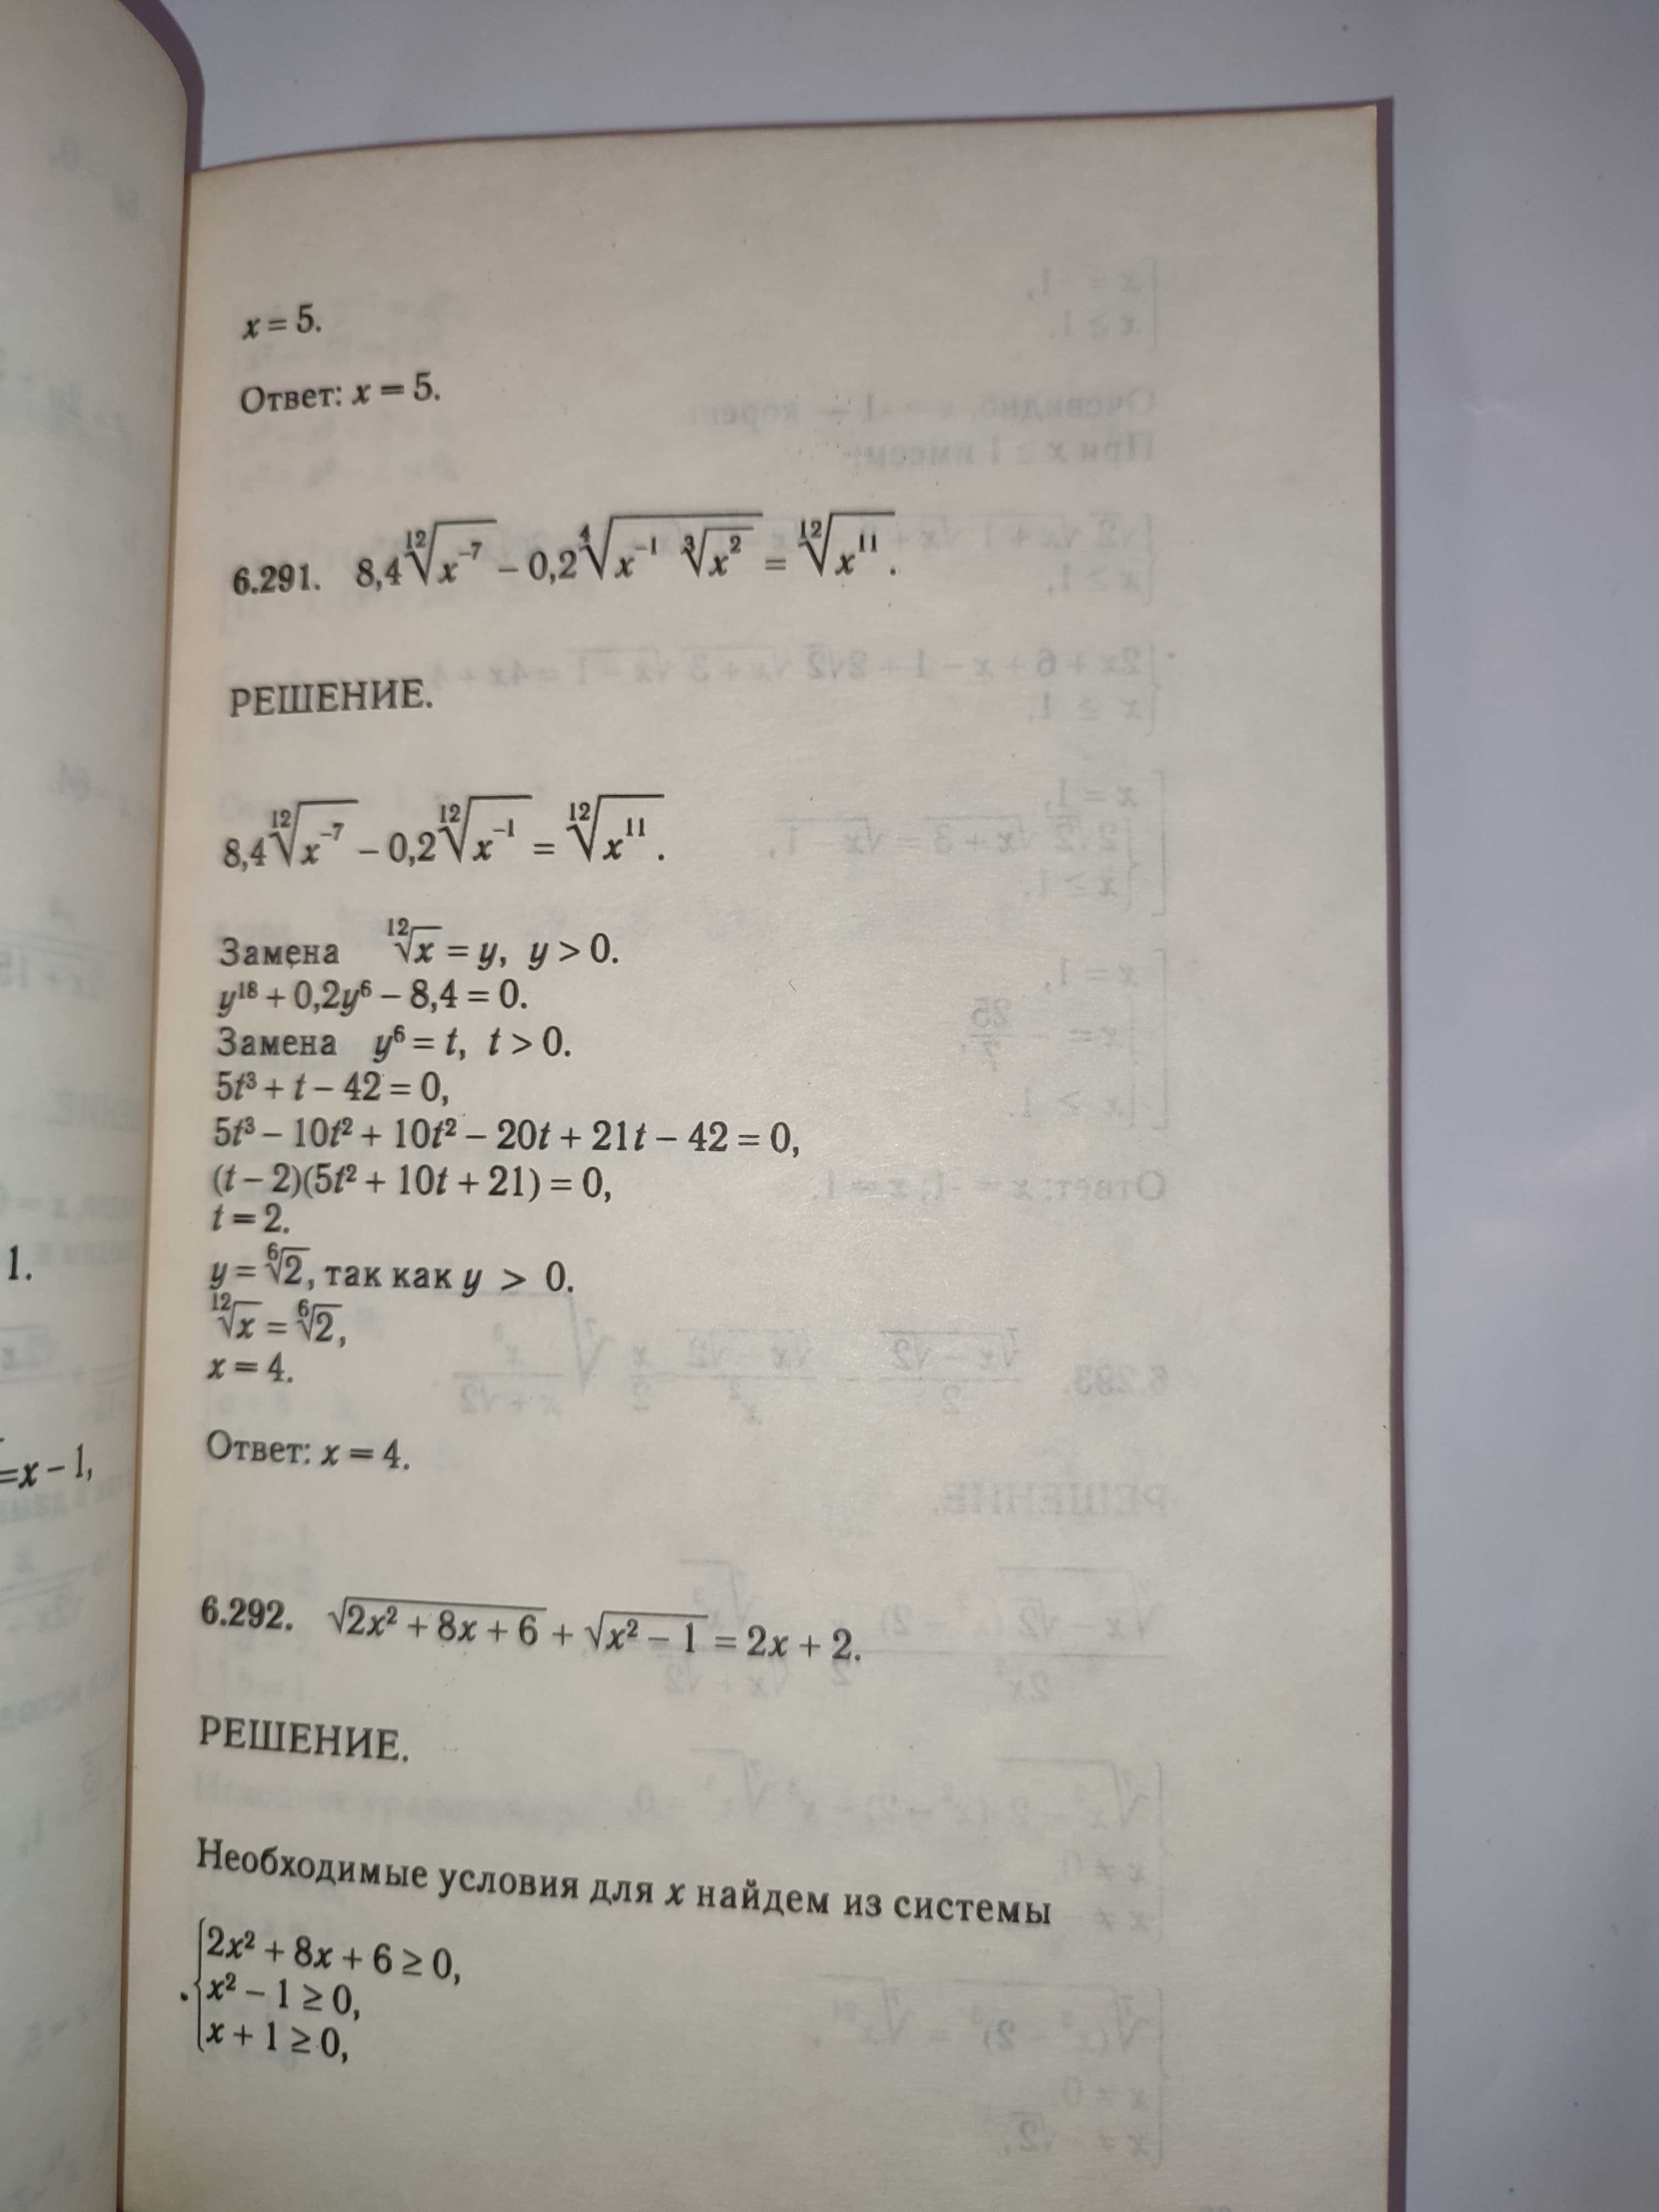 x = 5.
Ответ: x = 5.
6.291. 8,4 \sqrt[12]{x^{-7}} – 0,2 \sqrt[4]{x^{-1} \sqrt[3]{x^2}} = \sqrt[12]{x^{11}}.
РЕШЕНИЕ.
8,4 \sqrt[12]{x^{-7}} – 0,2 \sqrt[12]{x^{-1}} = \sqrt[12]{x^{11}}.
Замена \sqrt[12]{x} = y, y > 0.
y¹⁸ + 0,2y⁶ – 8,4 = 0.
Замена y⁶ = t, t > 0.
5t³ + t – 42 = 0,
5t³ – 10t² + 10t² – 20t + 21t – 42 = 0,
(t – 2)(5t² + 10t + 21) = 0,
t = 2.
y = \sqrt[6]{2}, так как y > 0.
\sqrt[12]{x} = \sqrt[6]{2},
x = 4.
Ответ: x = 4.
6.292. \sqrt{2x² + 8x + 6} + \sqrt{x² – 1} = 2x + 2.
РЕШЕНИЕ.
Необходимые условия для x найдем из системы
2x² + 8x + 6 ≥ 0,
x² – 1 ≥ 0,
x + 1 ≥ 0,
1.
=x – 1,